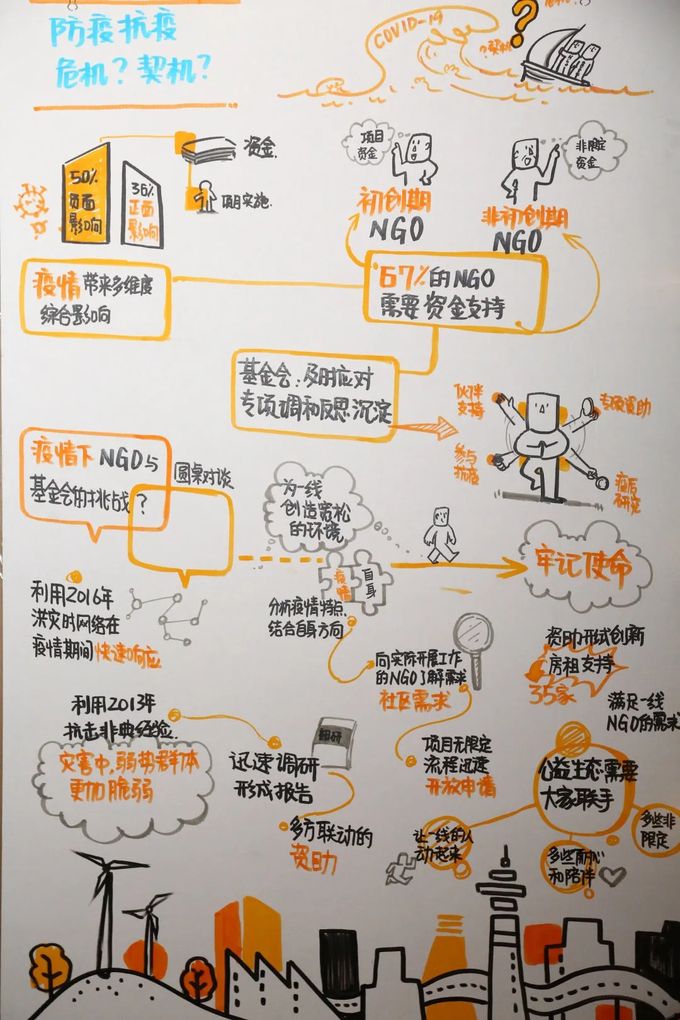 防疫抗疫
危机？契机？
COVID-19
?契机
?
50%
负面
影响
36%
正面
影响
资金.
项目实施.
项目
资金
非限定
资金
初创期
NGO
非初创期
NGO
疫情带来多维度
综合影响
67%的NGO
需要资金支持
基金会:及时应对
专项调和反思沉淀
伙伴
支持
专项资助
参与
抗疫
疫后
研究
疫情下NGO与
基金会的挑战？
圆桌对谈
为一线
创造宽松
的环境
疫情
自身
牢记使命
利用2016年
洪灾时网络在
疫情期间快速响应
分析疫情特点
结合自身方向
向实际开展工作
的NGO了解需求
社区需求
资助形式创新
房租支持
35家
满足一线
NGO的需求
利用2013年
抗击非典经验.
灾害中,弱势群体
更加脆弱
调研
迅速调研
形成报告
多方联动的
资助
项目无限定
流程迅速
开放申请
公益生态需要
大家联手
让一线的人
动起来
多些耐心
和陪伴
多些非
限定